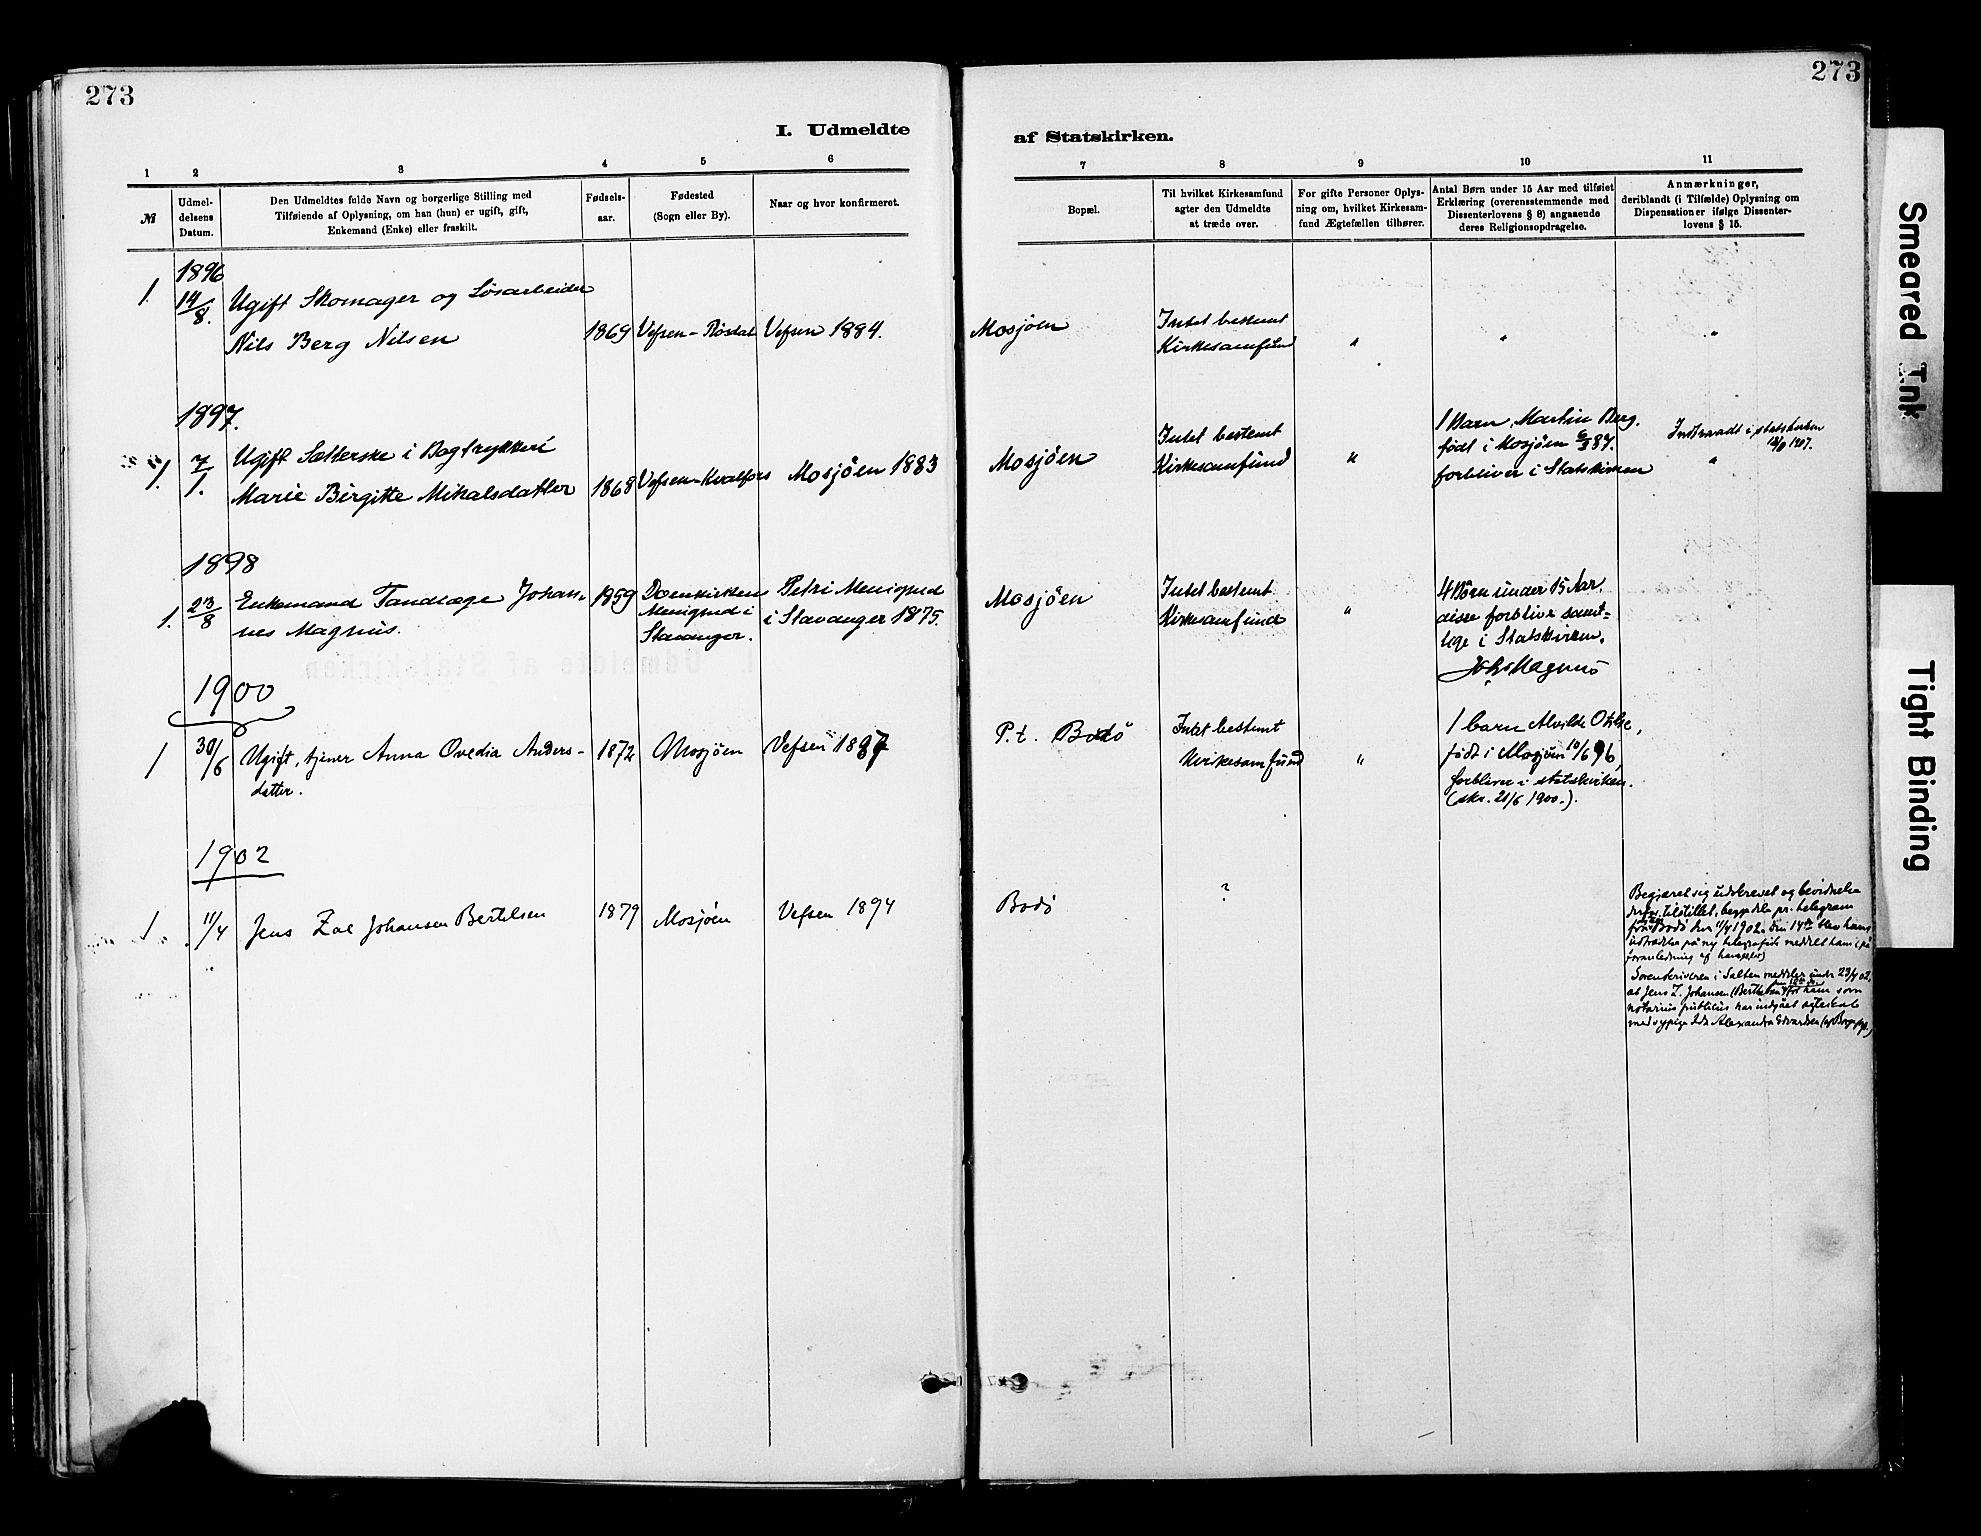 273
273
I. Udmeldte
af Statskirken.
1
2
3
4
5
6
7
8
9
10
11
№
Udmel-
delsens
Datum.
Den Udmeldtes fulde Navn og borgerlige Stilling med
Tilføiende af Oplysning, om han (hun) er ugift, gift,
Enkemand (Enke) eller fraskilt.
Fødsels-
aar.
Fødested
(Sogn eller By).
Naar og hvor konfirmeret.
Bopæl.
Til hvilket Kirkesamfund
agter den Udmeldte
at træde over.
For gifte Personer Oplys-
ning om, hvilket Kirkesam-
fund Ægtefællen tilhører.
Antal Børn under 15 Aar med tilføiet
Erklæring (overensstemmende med
Dissenterlovens § 8) angaaende
deres Religionsopdragelse.
Anmærkninger,
deriblandt (i Tilfælde) Oplysning om
Dispensationer ifølge Dissenter-
lovens § 15.
1896
1. 14/8. Ugift Skomager og Løsarbeider
Nils Berg Nilsen
1869
Vefsen-
Vefsen 1884.
Mosjöen
Intet bestemt
Kirkesamfund
"
"
"
1897.
1. 7/1. Ugift Sætterske i Bogtrykkeri
Marie Birgitte Mikalsdatter
1868
Vefsen-Kvalfors
Mosjöen 1883
Mosjöen
Intet bestemt
Kirkesamfund
"
1 Barn, Martin Berg,
født i Mosjöen 6/3 87.
forbliver i Statskirken
Indtraadt i statskirken
1907.
"
1898
1. 23/8 Enkemand Tandlæge Johan-
nes Magnus.
1859
Domkirkens
Menighed i
Stavanger.
Petri Menighed
i Stavanger 1875.
Mosjöen
Intet bestemt
Kirkesamfund
"
4 Børn under 15 Aar,
disse forblive samt-
lige i Statskirken.
Johs Magnus
1900
1 30/6 Ugift, tjener Anna Ovedia Anders-
datter.
1872
Mosjöen
Vefsen 1887
P.t. Bodö
Intet bestemt
Kirkesamfund
"
1 barn Alvilde
født i Mosjöen 10/6 96,
forbliver i statskirken.
(skr. 21/6 1900.).
1902
1 11/4 Jens Zal Johansen Bertelsen
1879
Mosjöen
Vefsen 1894
Bodö
?
Begjæret sig udskrevet og bevidnelse
derfor tilstillet, begge dele pr. telegram
fra Bodö den 11/4 1902. Den 14de blev hans
udtrædelse på ny telegrafisk meddelt ham (på
foranledning af
Sorenskriveren i Salten meddeler under 23/4 02,
at Jens Z. Johansen (Bertelsen) for ham som
notarius publicus har indgået ægteskab
med pige Ida Alexandra Edvardsen
Smeared Ink
Tight Binding